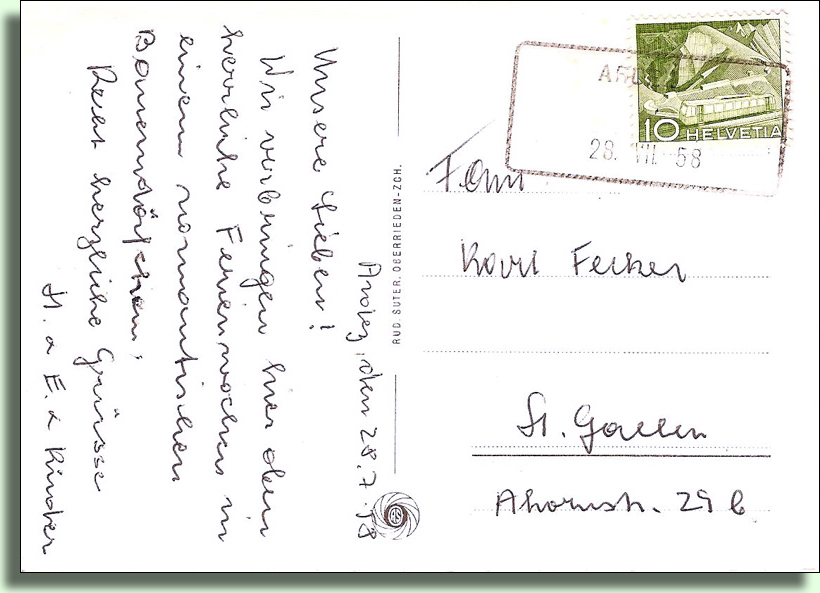 Ardez, den 28.7.58
Unsere Lieben!
Wir verbringen hier
herrliche Ferienwochen in
einem romantischen
Bauerndörfchen.
Recht herzliche Grüsse
H. & E. & Kinder
RUD. SUTER, OBERRIEDEN-ZCH.
10 HELVETIA
28. VII. 58
Fam.
Karl Fecker
St. Gallen
Ahornstr. 29 b